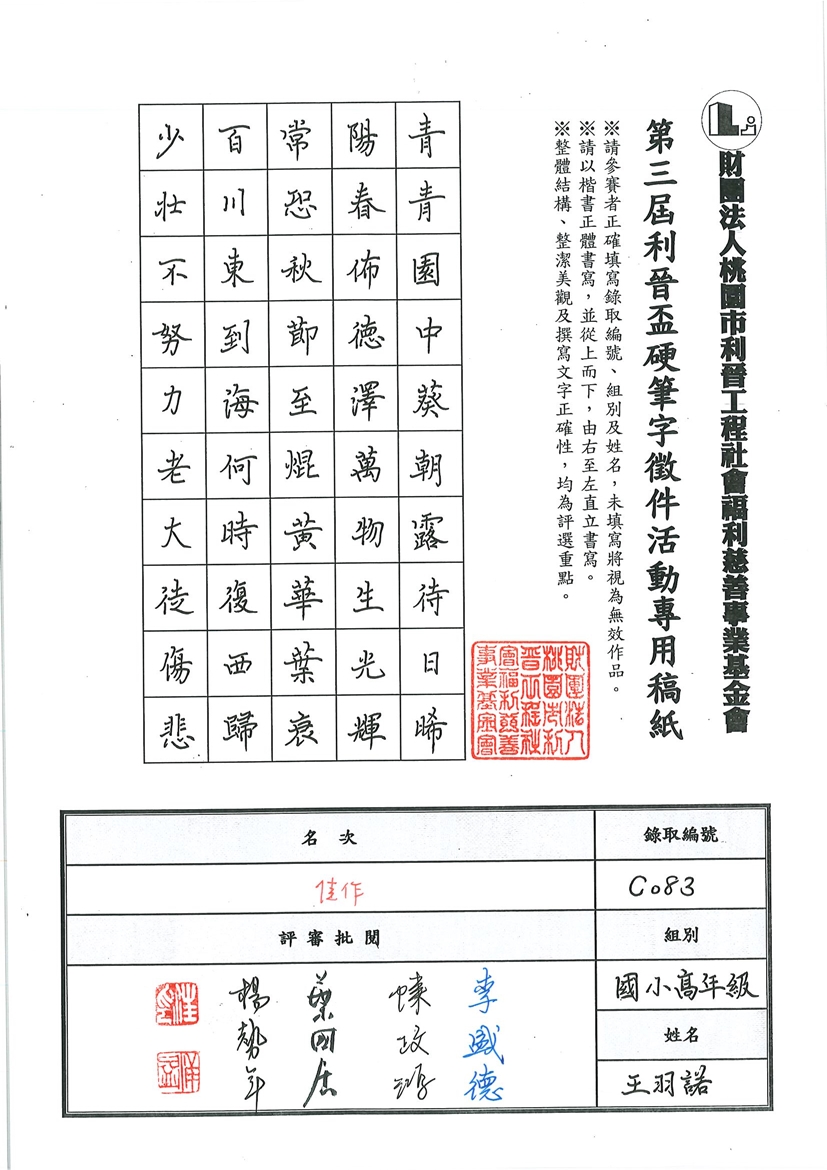 財團法人桃園市利晉工程社會福利慈善事業基金會
第三屆利晉盃硬筆字徵件活動專用稿紙
※請參賽者正確填寫錄取編號、組別及姓名，未填寫將視為無效作品。
※請以楷書正體書寫，並從上而下，由右至左直立書寫。
※整體結構、整潔美觀及撰寫文字正確性，均為評選重點。
財團法人
桃園市利
晉工程社
會福利慈善
事業基金會
青青園中葵朝露待日晞
陽春佈德澤萬物生光輝
常恐秋節至焜黃華葉衰
百川東到海何時復西歸
少壯不努力老大徒傷悲
錄取編號
C083
組別
國小高年級
姓名
王羽諾
名次
佳作
評審批閱
李盛德
葉國居
楊勢年